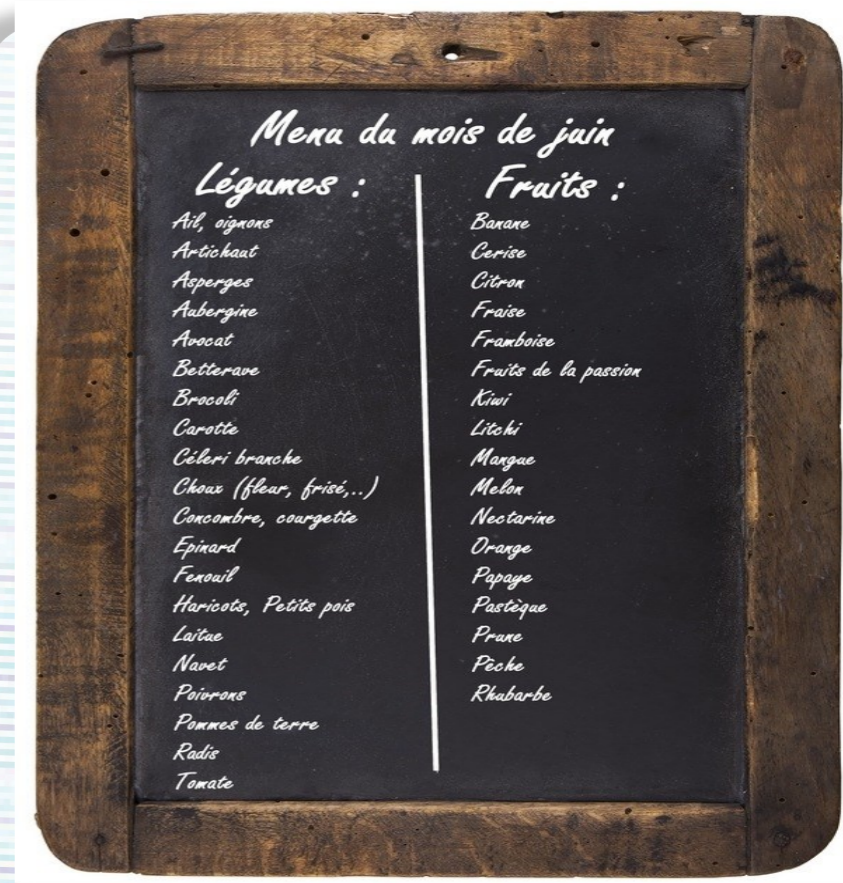 Menu du mois de juin
Légumes :
Ail, oignons
Artichaut
Asperges
Aubergine
Avocat
Betterave
Brocoli
Carotte
Céleri branche
Choux (fleur, frisé,..)
Concombre, courgette
Epinard
Fenouil
Haricots, Petits pois
Laitue
Navet
Poivrons
Pommes de terre
Radis
Tomate
Fruits :
Banane
Cerise
Citron
Fraise
Framboise
Fruits de la passion
Kiwi
Litchi
Mangue
Melon
Nectarine
Orange
Papaye
Pastèque
Prune
Pèche
Rhubarbe